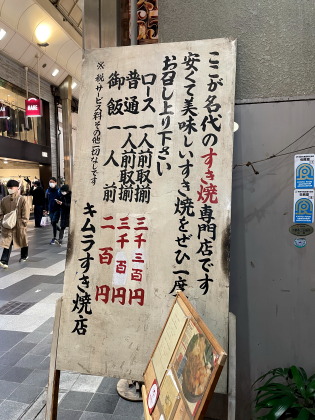 ここが名代のすき焼専門店です
安くて美味しいすき焼をぜひ一度
お召し上り下さい
ロース 一人前取揃 三千三百円
普通 一人前取揃 三千百円
御飯 一人前 二百円
※税サービス料その他一切なしです
キムラすき焼店